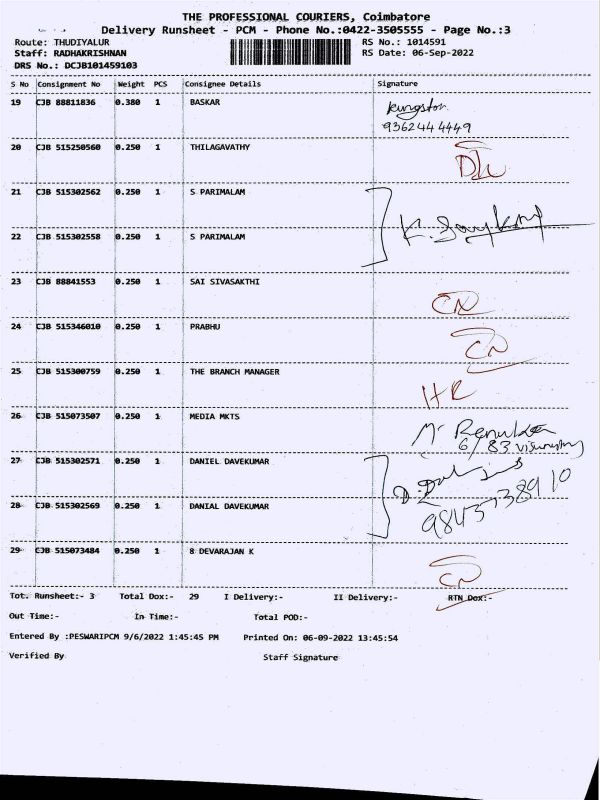 THE PROFESSIONAL COURIERS, Coimbatore
Delivery Runsheet - PCM - Phone No.:0422-3505555 - Page No.:3
Route: THUDIYALUR RS No.: 1014591
Staff: RADHAKRISHNAN RS Date: 06-Sep-2022
DRS No.: DCJB101459103
S No Consignment No Weight PCS Consignee Details Signature
19 CJB 88811836 0.380 1 BASKAR Kingston
9362444449
20 CJB 515250560 0.250 1 THILAGAVATHY
21 CJB 515302562 0.250 1 S PARIMALAM
22 CJB 515302558 0.250 1 S PARIMALAM
23 CJB 88841553 0.250 1 SAI SIVASAKTHI
24 CJB 515346010 0.250 1 PRABHU
25 CJB 515300759 0.250 1 THE BRANCH MANAGER
26 CJB 515073507 0.250 1 MEDIA MKTS Renuka
6/83
27 CJB 515302571 0.250 1 DANIEL DAVEKUMAR
28 CJB 515302569 0.250 1 DANIAL DAVEKUMAR 9843738910
29 CJB 515073484 0.250 1 8 DEVARAJAN K
Tot. Runsheet:- 3 Total Dox:- 29 I Delivery:- II Delivery:- RTN Dox:-
Out Time:- In Time:- Total POD:-
Entered By :PESWARIPCM 9/6/2022 1:45:45 PM Printed On: 06-09-2022 13:45:54
Verified By Staff Signature